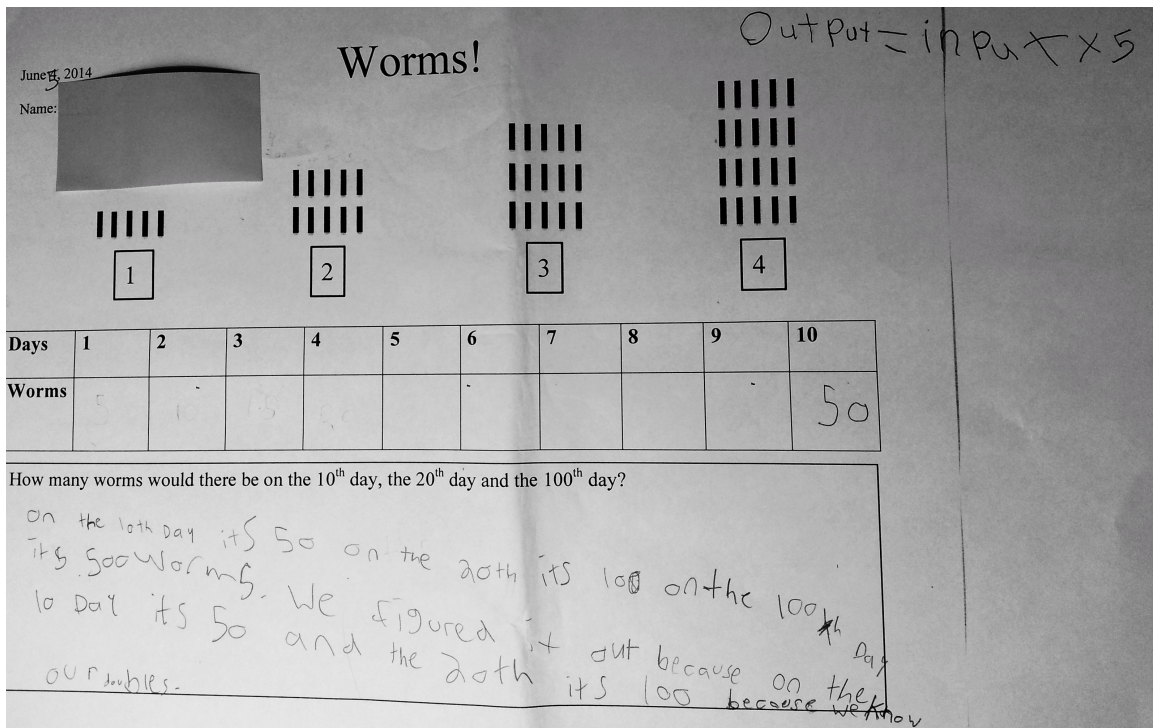 Output = input x 5
Worms!
June 5, 2014
Name:
1 2 3 4
Days 1 2 3 4 5 6 7 8 9 10
Worms 5 10 15 20 50
How many worms would there be on the 10th day, the 20th day and the 100th day?
on the 10th Day its 50 on the 20th its 100 on the 100th Day
its 500 worms. We figured it out because on the
10 Day its 50 and the 20th its 100 because we know
our doubles.